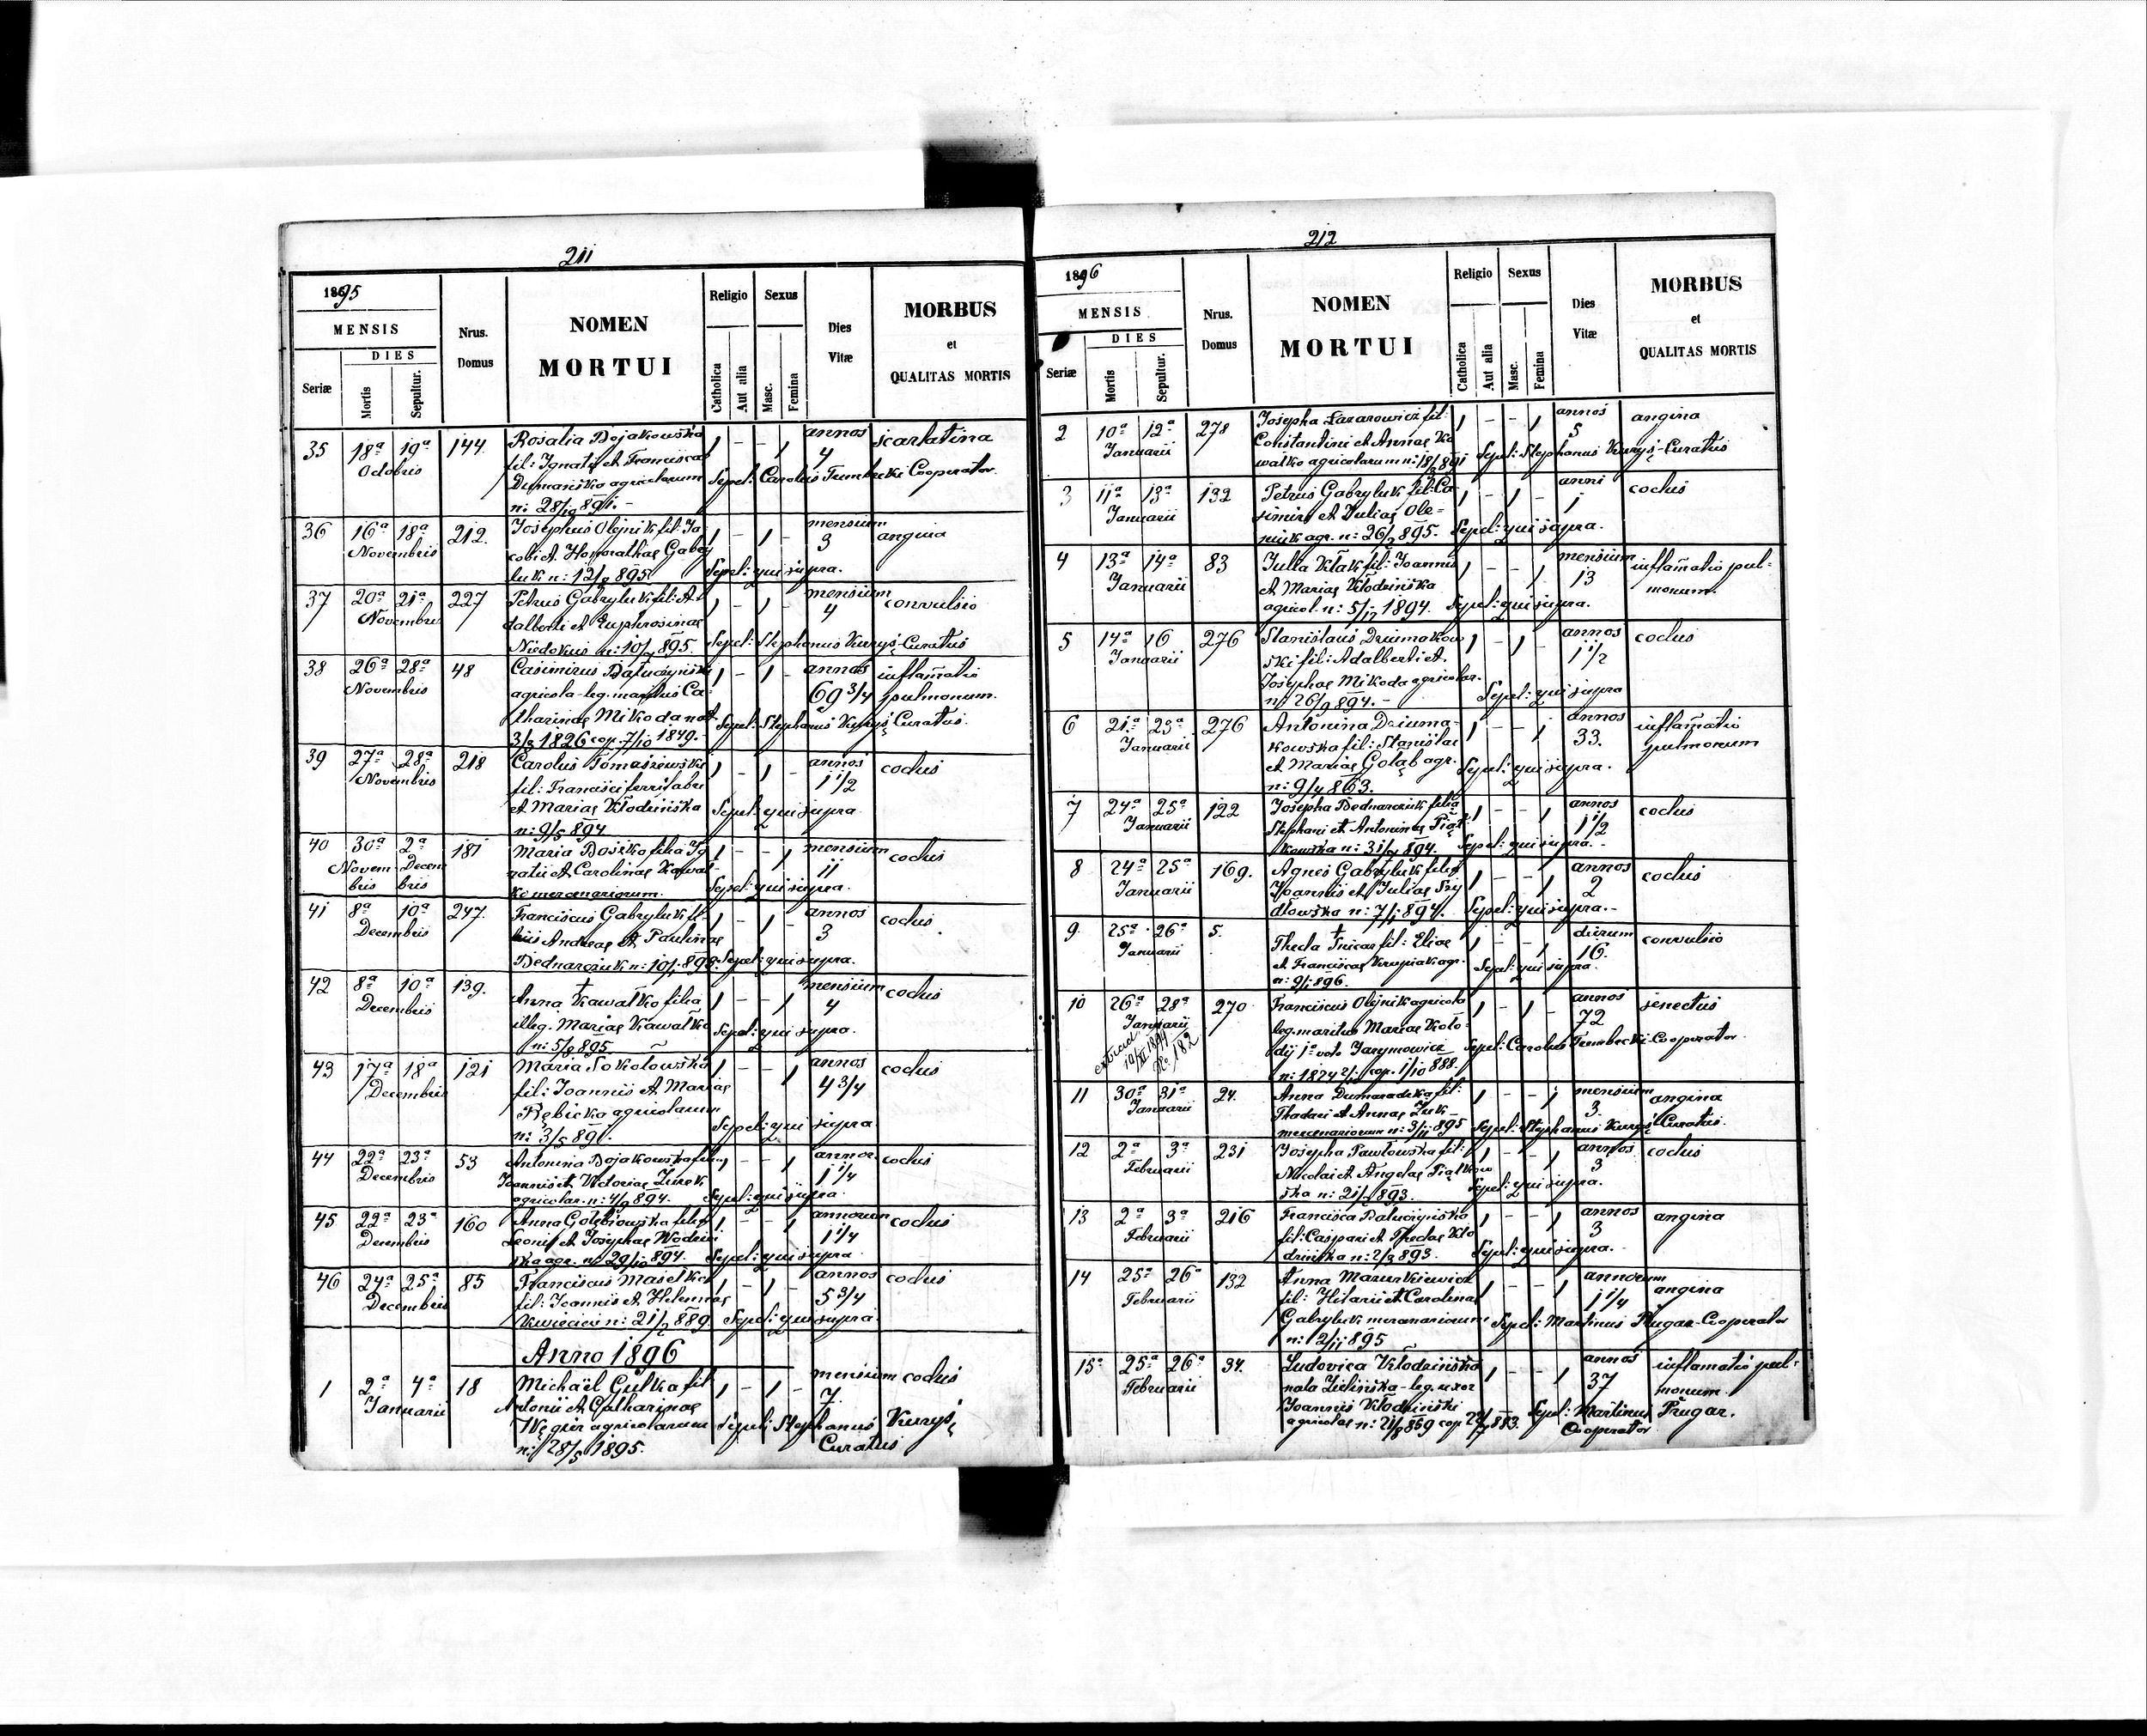 211
1895
MENSIS
DIES
Seriæ
Mortis
Sepultur.
Nrus.
Domus
NOMEN
MORTUI
Religio
Sexus
Catholica
Aut alia
Masc.
Femina
Dies
Vitæ
MORBUS
et
QUALITAS MORTIS
35 18a 19a 144 Rosalia Bojakowska 1 - - 1 annos scarlatina
Octobris fil: Ignatii et Franciscae 4
agricolarum Sepel: Carolus Trembecki Cooperator
n: 28/10 891. -
36 16a 18a 212. Josephus Olejnik fil: Ja- 1 - 1 - mensium angina
Novembris cobi et Honorathae Gabry 3
luk n: 12/8 895 Sepel: qui supra.
37 20a 21a 227 Petrus Gabryluk fil: A- 1 - 1 - mensium convulsio
Novembris dalberti et Euphrosinae 4
n: 10/7 895. Sepel: Stephanus Kuryś Curatus
38 26a 28a 48 Casimirus 1 - 1 - annos inflam̄atio
Novembris agricola leg. maritus Ca- 69 3/4 pulmonum.
tharinae Mikoda nat. Sepel: Stephanus Kuryś Curatus.
3/3 1826 cop. 7/10 1849. -
39 27a 28a 218 Carolus Tomaszewski 1 - 1 - annos coclus
Novembris fil: Francisci ferri fabri 1 1/2
et Mariae Kłodzińska Sepel: qui supra
n: 9/5 894
40 30a 2a 181 Maria filia Ig 1 - - 1 mensium coclus
Novem- Decem natii et Carolinae Kawał- 11
bris bris ko mercenariorum. Sepel: qui supra.
41 8a 10a 247. Franciscus Gabryluk fi- 1 - 1 - annos coclus
Decembris lius Andreae et Paulinae 3
Bednarczuk n: 10/1 893. Sepel: qui supra.
42 8a 10a 139. Anna Kawałko filia 1 - - 1 mensium coclus
Decembris illeg. Mariae Kawałko 4
n: 5/8 895 Sepel: qui supra.
43 17a 18a 121 Maria Sokołowska 1 - - 1 annos coclus
Decembris fil: Joannis et Mariae 4 3/4
agricolarum
n: 3/5 891. Sepel: qui supra
44 22a 23a 53 Antonina Bojakowska fil: 1 - - 1 annor. coclus
Decembris Joannis et Victoriae Żurek 1 1/4
agricolar. n: 4/9 894. Sepel: qui supra.
45 22a 23a 160 Anna Gołębiowska filia 1 - - 1 annorum coclus
Decembris Leonis et Josephae Kłodziń 1 1/4
ska agr. n: 29/10 894. Sepel: qui supra
46 24a 25a 85 Franciscus Masełko 1 - 1 - annos coclus
Decembris fil: Joannis et Helenae 5 3/4
Kwiecień n: 21/2 889 Sepel: qui supra
Anno 1896
1 2a 4a 18 Michaël Gulka fil 1 - 1 - mensium coclus
Januarii Antonii et Catharinae 7.
Węgier agricolarum Sepel: Stephanus Kuryś
n: 28/5 1895. Curatus
212
1896
MENSIS
DIES
Seriæ
Mortis
Sepultur.
Nrus.
Domus
NOMEN
MORTUI
Religio
Sexus
Catholica
Aut alia
Masc.
Femina
Dies
Vitæ
MORBUS
et
QUALITAS MORTIS
2 10a 12a 278 Josepha Łazarowicz fil: 1 - - 1 annos angina
Januarii Constantini et Annae Ka 5
wałko agricolarum n: 18/3 891 Sepel: Stephanus Kuryś - Curatus
3 11a 13a 132 Petrus Gabryluk fil: Ca- 1 - 1 - anni coclus
Januarii simiri et Juliae Ole- 1
agr. n: 26/2 895. Sepel: qui supra.
4 13a 14a 83 Julia Kłak fil: Joannis 1 - - 1 mensium inflam̄atio pul-
Januarii et Mariae Kłodzińska 13 monum.
agricol. n: 5/12 1894. Sepel: qui supra.
5 14a 16 276 Stanislaus Dziumakow 1 - 1 - annos coclus
Januarii ski fil: Adalberti et 1 1/2
Josephae Mikoda agricolar.
n: 26/9 894. - Sepel: qui supra
6 21a 23a 276 Antonina Dziuma- 1 - - 1 annos inflam̄atio
Januarii kowska fil: Stanislai 33. pulmonum
et Mariae Gołąb agr. Sepel: qui supra.
n: 9/4 863.
7 24a 25a 122 Josepha Bednarczuk filia 1 - - 1 annos coclus
Januarii Stephani et Antoninae Piąt 1 1/2
kowska n: 31/7 894. Sepel: qui supra. -
8 24a 25a 169. Agnes Gabryluk filia 1 - - 1 annos coclus
Januarii Joannis et Juliae Szy 2
dłowska n: 7/1 894. Sepel: qui supra. -
9 25a 26a 5. Thecla fil: Eliae 1 - - 1 dierum convulsio
Januarii et Franciscae Krupiak agr. 16.
n: 9/1 896. Sepel: qui supra.
10 26a 28a 270 Franciscus Olejnik agricola 1 - 1 - annos senectus
Januarii leg. maritus Mariae Koło- 72
dij 1o voto Jarymowicz Sepel: Carolus Trembecki Cooperator
n: 1824 cop. 1/10 888.
No. 182
11 30a 31a 24. Anna fil: 1 - - 1 mensium angina
Januarii Thadaei et Annae Żuk- 3.
mercenariorum n: 3/11 895 Sepel: Stephanus Kuryś Curatus.
12 2a 3a 231 Josepha Pawłowska fil: 1 - - 1 annos coclus
Februarii Nicolai et Angelae Piątkow 3
ska n: 21/2 893. Sepel: qui supra.
13 2a 3a 216 Francisca 1 - - 1 annos angina
Februarii fil: Caspari et Theclae Kło 3
dzińska n: 2/3 893. Sepel: qui supra.
14 25a 26a 132 Anna Mazurkiewicz 1 - - 1 annorum angina
Februarii fil: Hilarii et Carolinae 1 1/4
Gabryluk mercenariorum Sepel: Martinus Prugar Cooperator
n: 12/11 895
15 25a 26a 34. Ludovica Kłodzińska 1 - - 1 annos inflamatio pul-
Februarii nata Zielińska - leg. uxor 37 monum.
Joannis Kłodziński Sepel: Martinus Prugar.
agricolae n: 21/8 859 cop. 883. Cooperator